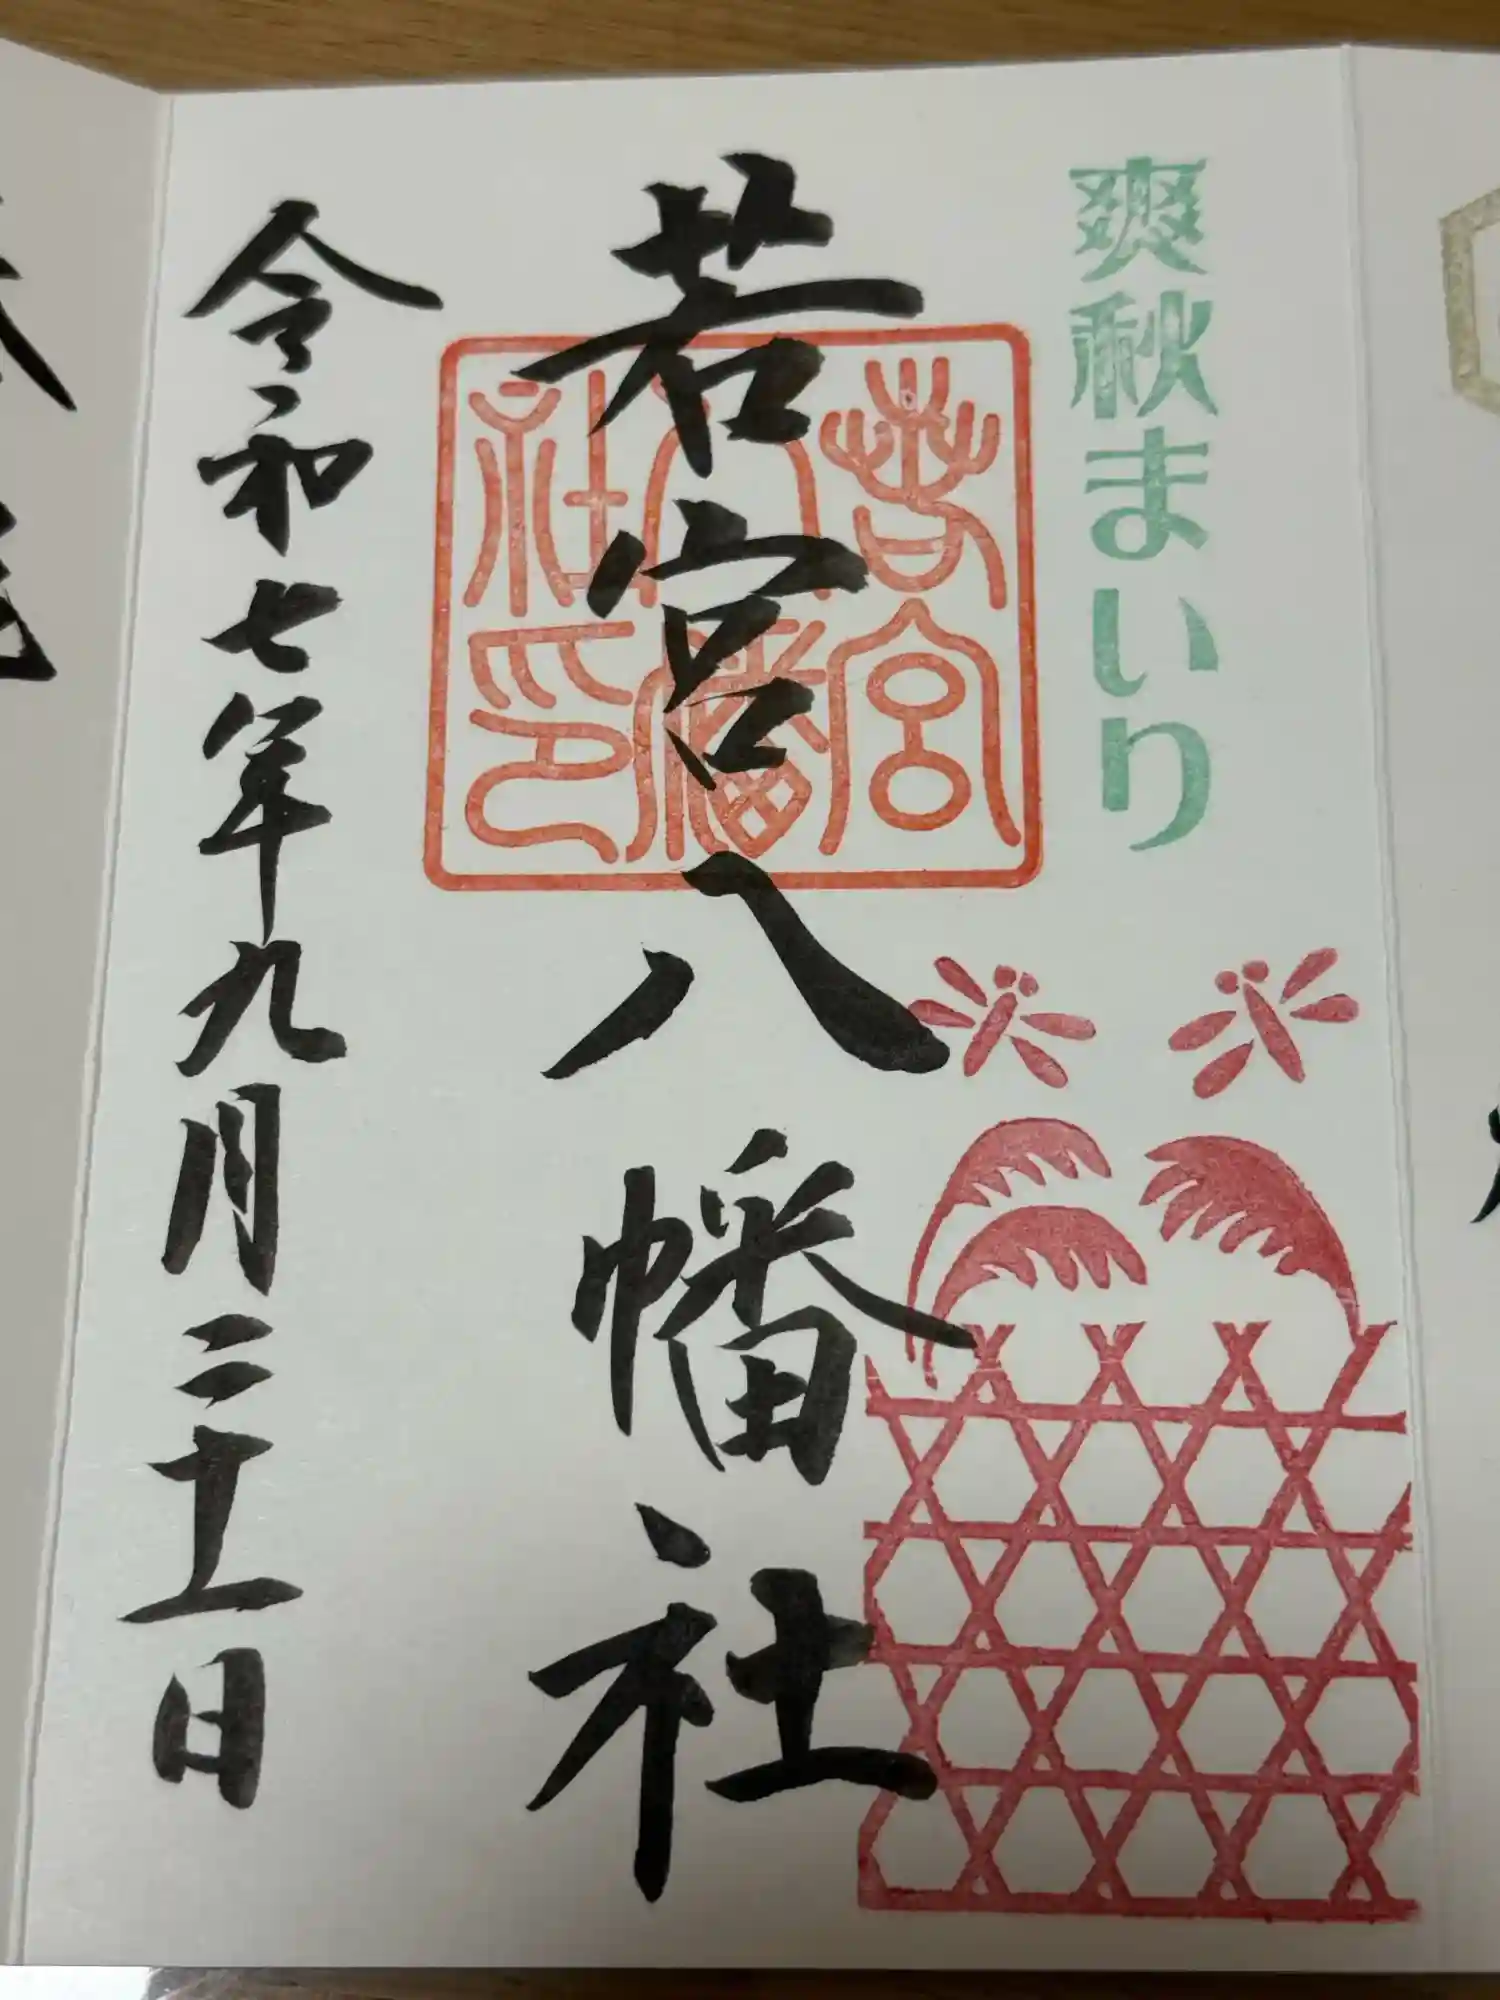 爽秋まいり
若宮八幡社
若宮八幡社印
令和七年九月二十一日